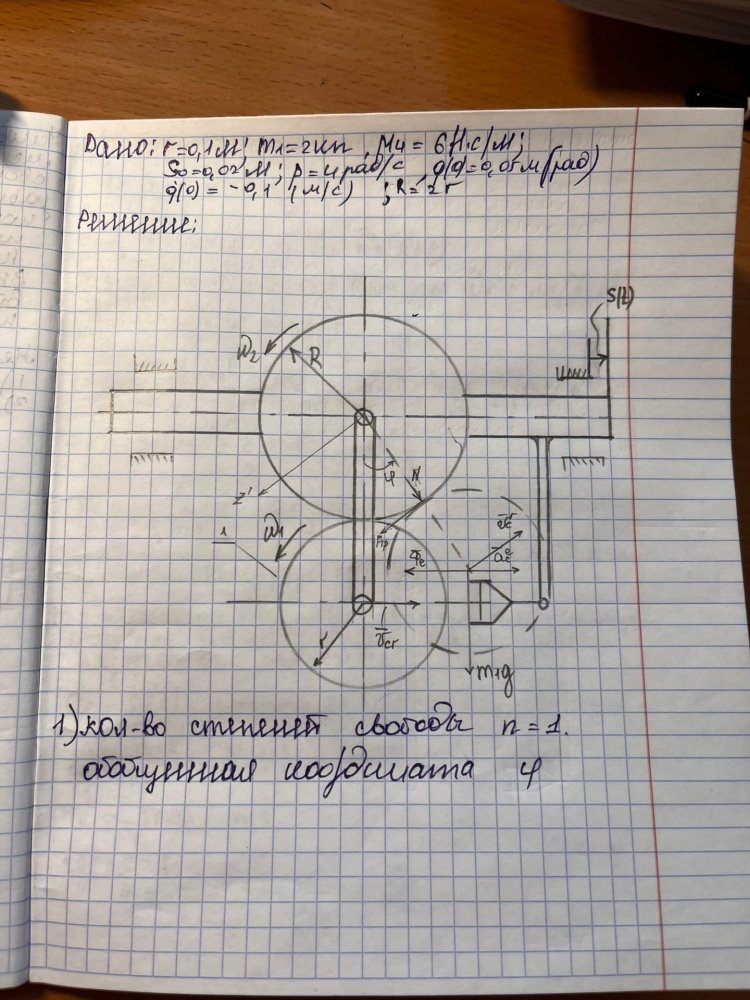 Дано: r=0,1м; m1=2кг, M4=6Н·с/м;
S0=0,02м; p=4рад/с, q(0)=0,05м(рад)
q̇(0)=-0,1 (м/с) ; R=2r
Решение:
S(t)
ω2
R
z'
φ
N
1
ω1
Fтр
r
m1g
1) кол-во степеней свободы n=1.
обобщенная координата φ